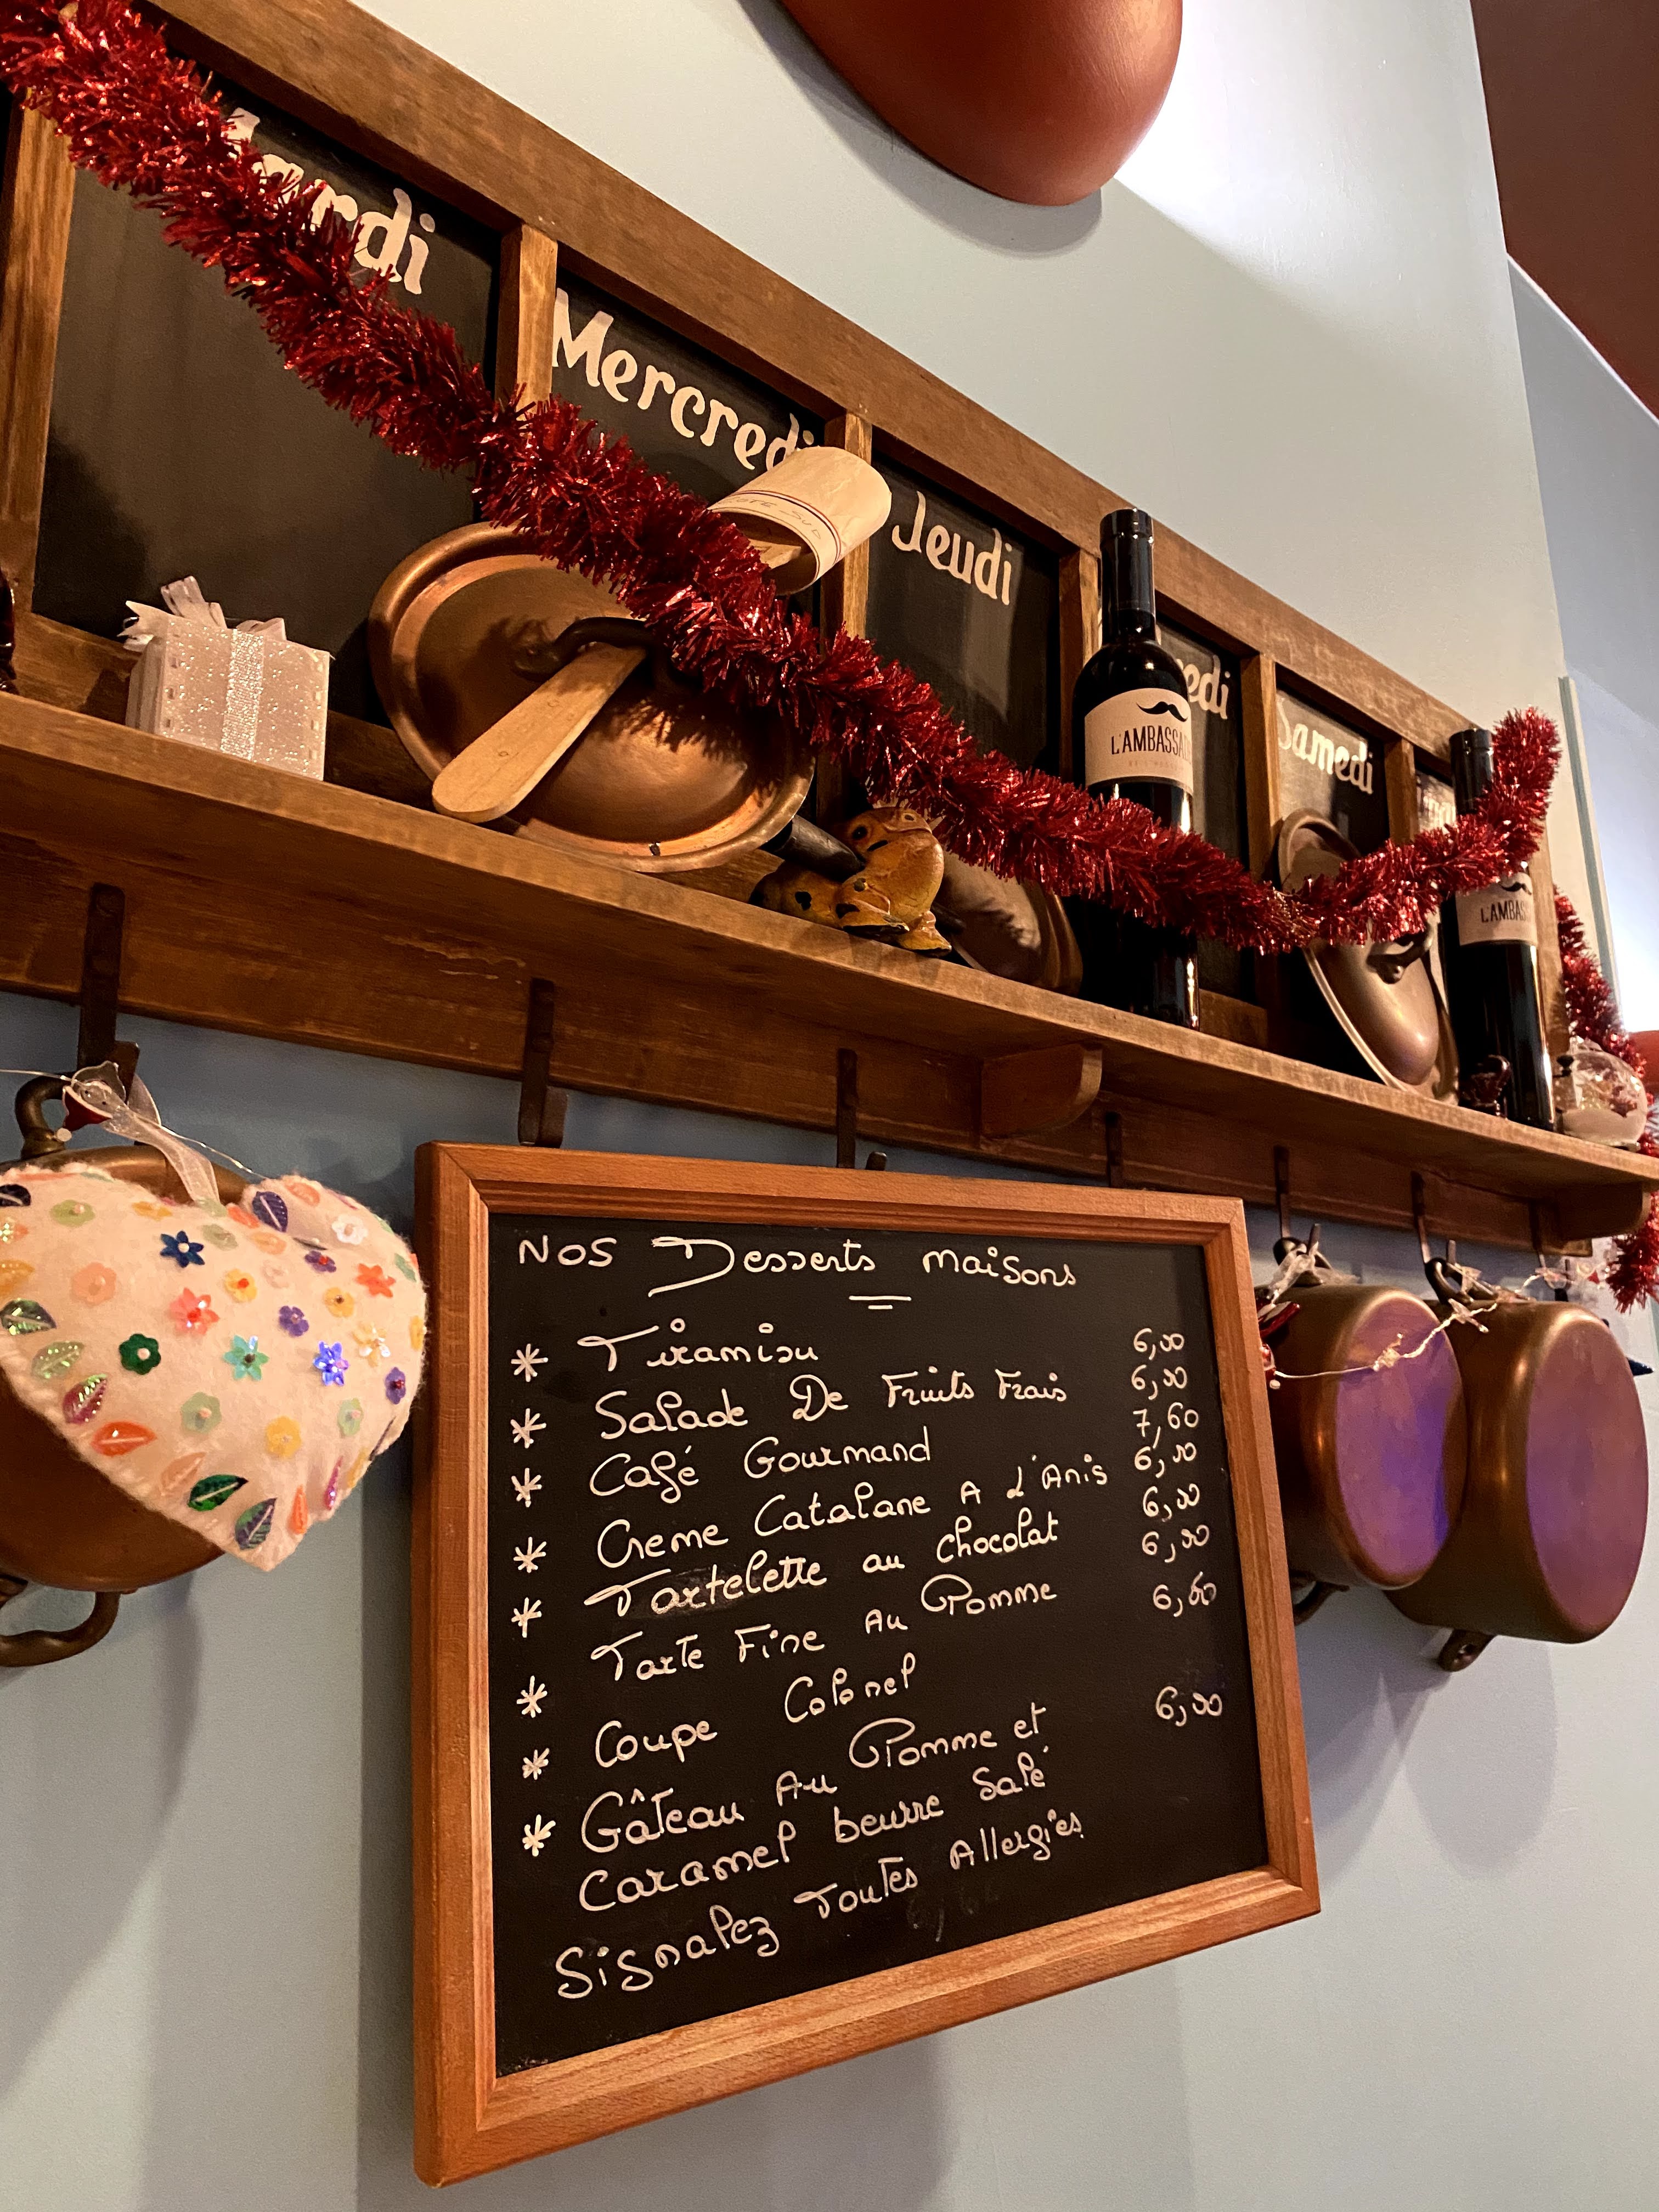 Mardi
Mercredi
COTE-SUD
Jeudi
redi
Samedi
L'AMBASSA
L'AMBASS
Nos Desserts maisons
* Tiramisu 6,00
* Salade De Fruits Frais 6,00
* Café Gourmand 7,60
* Creme Catalane A L'Anis 6,00
* Tartelette au chocolat 6,00
* Tarte Fine Au Pomme 6,00
* Coupe Colonel 6,60
* Gâteau Au Pomme et 6,00
Caramel beurre Salé
Signalez Toutes Allergies